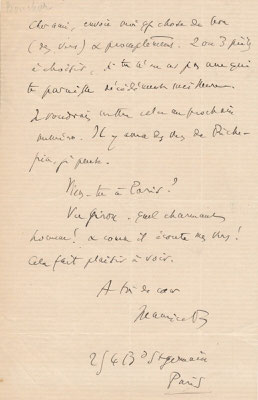 Bouchor
Cher ami, envoie moi qq chose de bon
(des vers) & promptement. 2 ou 3 pièces
à choisir, si tu n'en as pas une qui
te paraisse décidément meilleure.
Je voudrais mettre cela au prochain
numéro. Il y aura des vers de Riche-
pin, je pense.
Viens-tu à Paris?
Vu Giron. Quel charmant
homme! & come il écoute mes vers!
Cela fait plaisir à voir.
A toi de cœur
Maurice B
254 Bd St germain
Paris